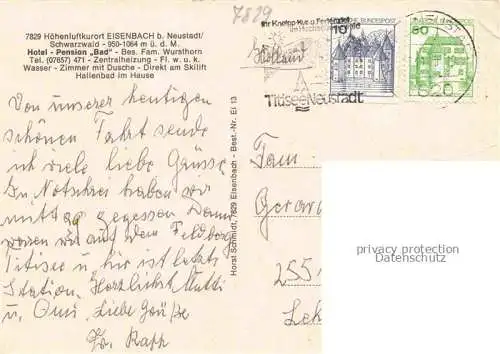 7829
7829 Höhenluftkurort EISENBACH b. Neustadt/
Schwarzwald - 950-1064 m ü. d. M.
Hotel - Pension „Bad" - Bes. Fam. Wursthorn
Tel. (07657) 471 - Zentralheizung - Fl. w. u. k.
Wasser - Zimmer mit Dusche - Direkt am Skilift
Hallenbad im Hause
Von unserer heutigen
schönen Fahrt sende
ich viele liebe Grüsse.
In haben wir
mittag gegessen Dann
waren wir auf dem Feldberg
Titisee u. hier ist letzte
Station. Herzlichst Mutti
u. Omi. Liebe Grüße
Horst Schmidt, 7829 Eisenbach - Best.-Nr. Ei 13
Ihr Kneipp-Kur-u.Ferienziel
im Hochschwarzwald
Titisee Neustadt
DEUTSCHE BUNDESPOST
10
50
7820
Fam.
255
privacy protection
Datenschutz